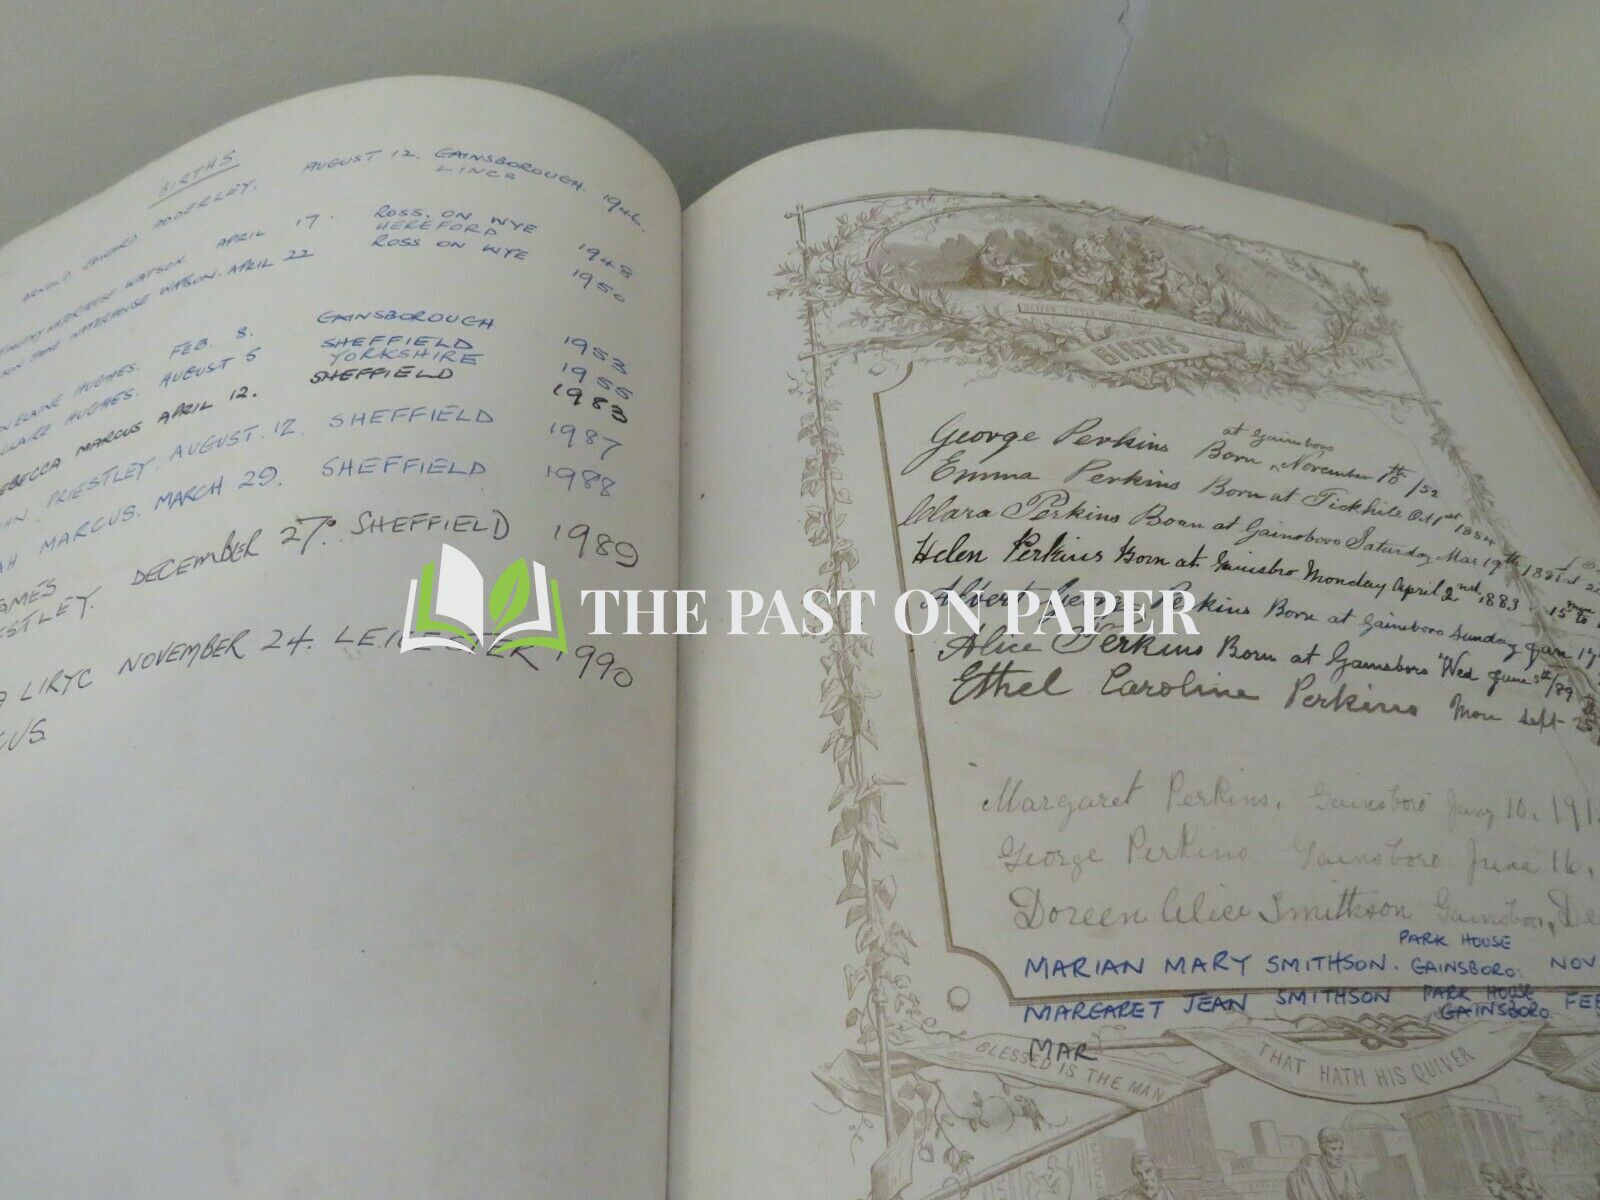 BIRTHS
ARNOLD EDWARD ADDERLEY. AUGUST 12. GAINSBOROUGH. 1946.
LINCS
WATSON. APRIL 17. ROSS. ON WYE 1948
HEREFORD
WATSON. APRIL 22 ROSS ON WYE 1950
HUGHES. FEB. 8. GAINSBOROUGH 1953
CLAIRE HUGHES. AUGUST 5 SHEFFIELD
YORKSHIRE
REBECCA MARCUS APRIL 12. SHEFFIELD 1983
PRIESTLEY. AUGUST. 12 SHEFFIELD 1987
MARCUS. MARCH 29. SHEFFIELD 1988
JAMES DECEMBER 27. SHEFFIELD 1989
LIRYC NOVEMBER 24. LEICESTER 1990
THE PAST ON PAPER
BIRTHS
George Perkins Born at Gainsboro November 10th /52
Emma Perkins Born at Tickhill Oct 1st 1854
Clara Perkins Born at Gainsboro Saturday Mar 19th 1881
Helen Perkins Born at Gainsbro Monday April 2nd 1883
Albert George Perkins Born at Gainsboro Sunday Jan 17
Alice Perkins Born at Gainsboro Wed June 5th/89
Ethel Caroline Perkins Mon Sept 25
Margaret Perkins, Gainsboro Jany 10, 191
George Perkins Gainsboro June 16,
Doreen Alice Smithson Gainsboro, De
MARIAN MARY SMITHSON. PARK HOUSE GAINSBORO. NOV
MARGARET JEAN SMITHSON PARK HOUSE GAINSBORO FEB
MAR
BLESSED IS THE MAN
THAT HATH HIS QUIVER